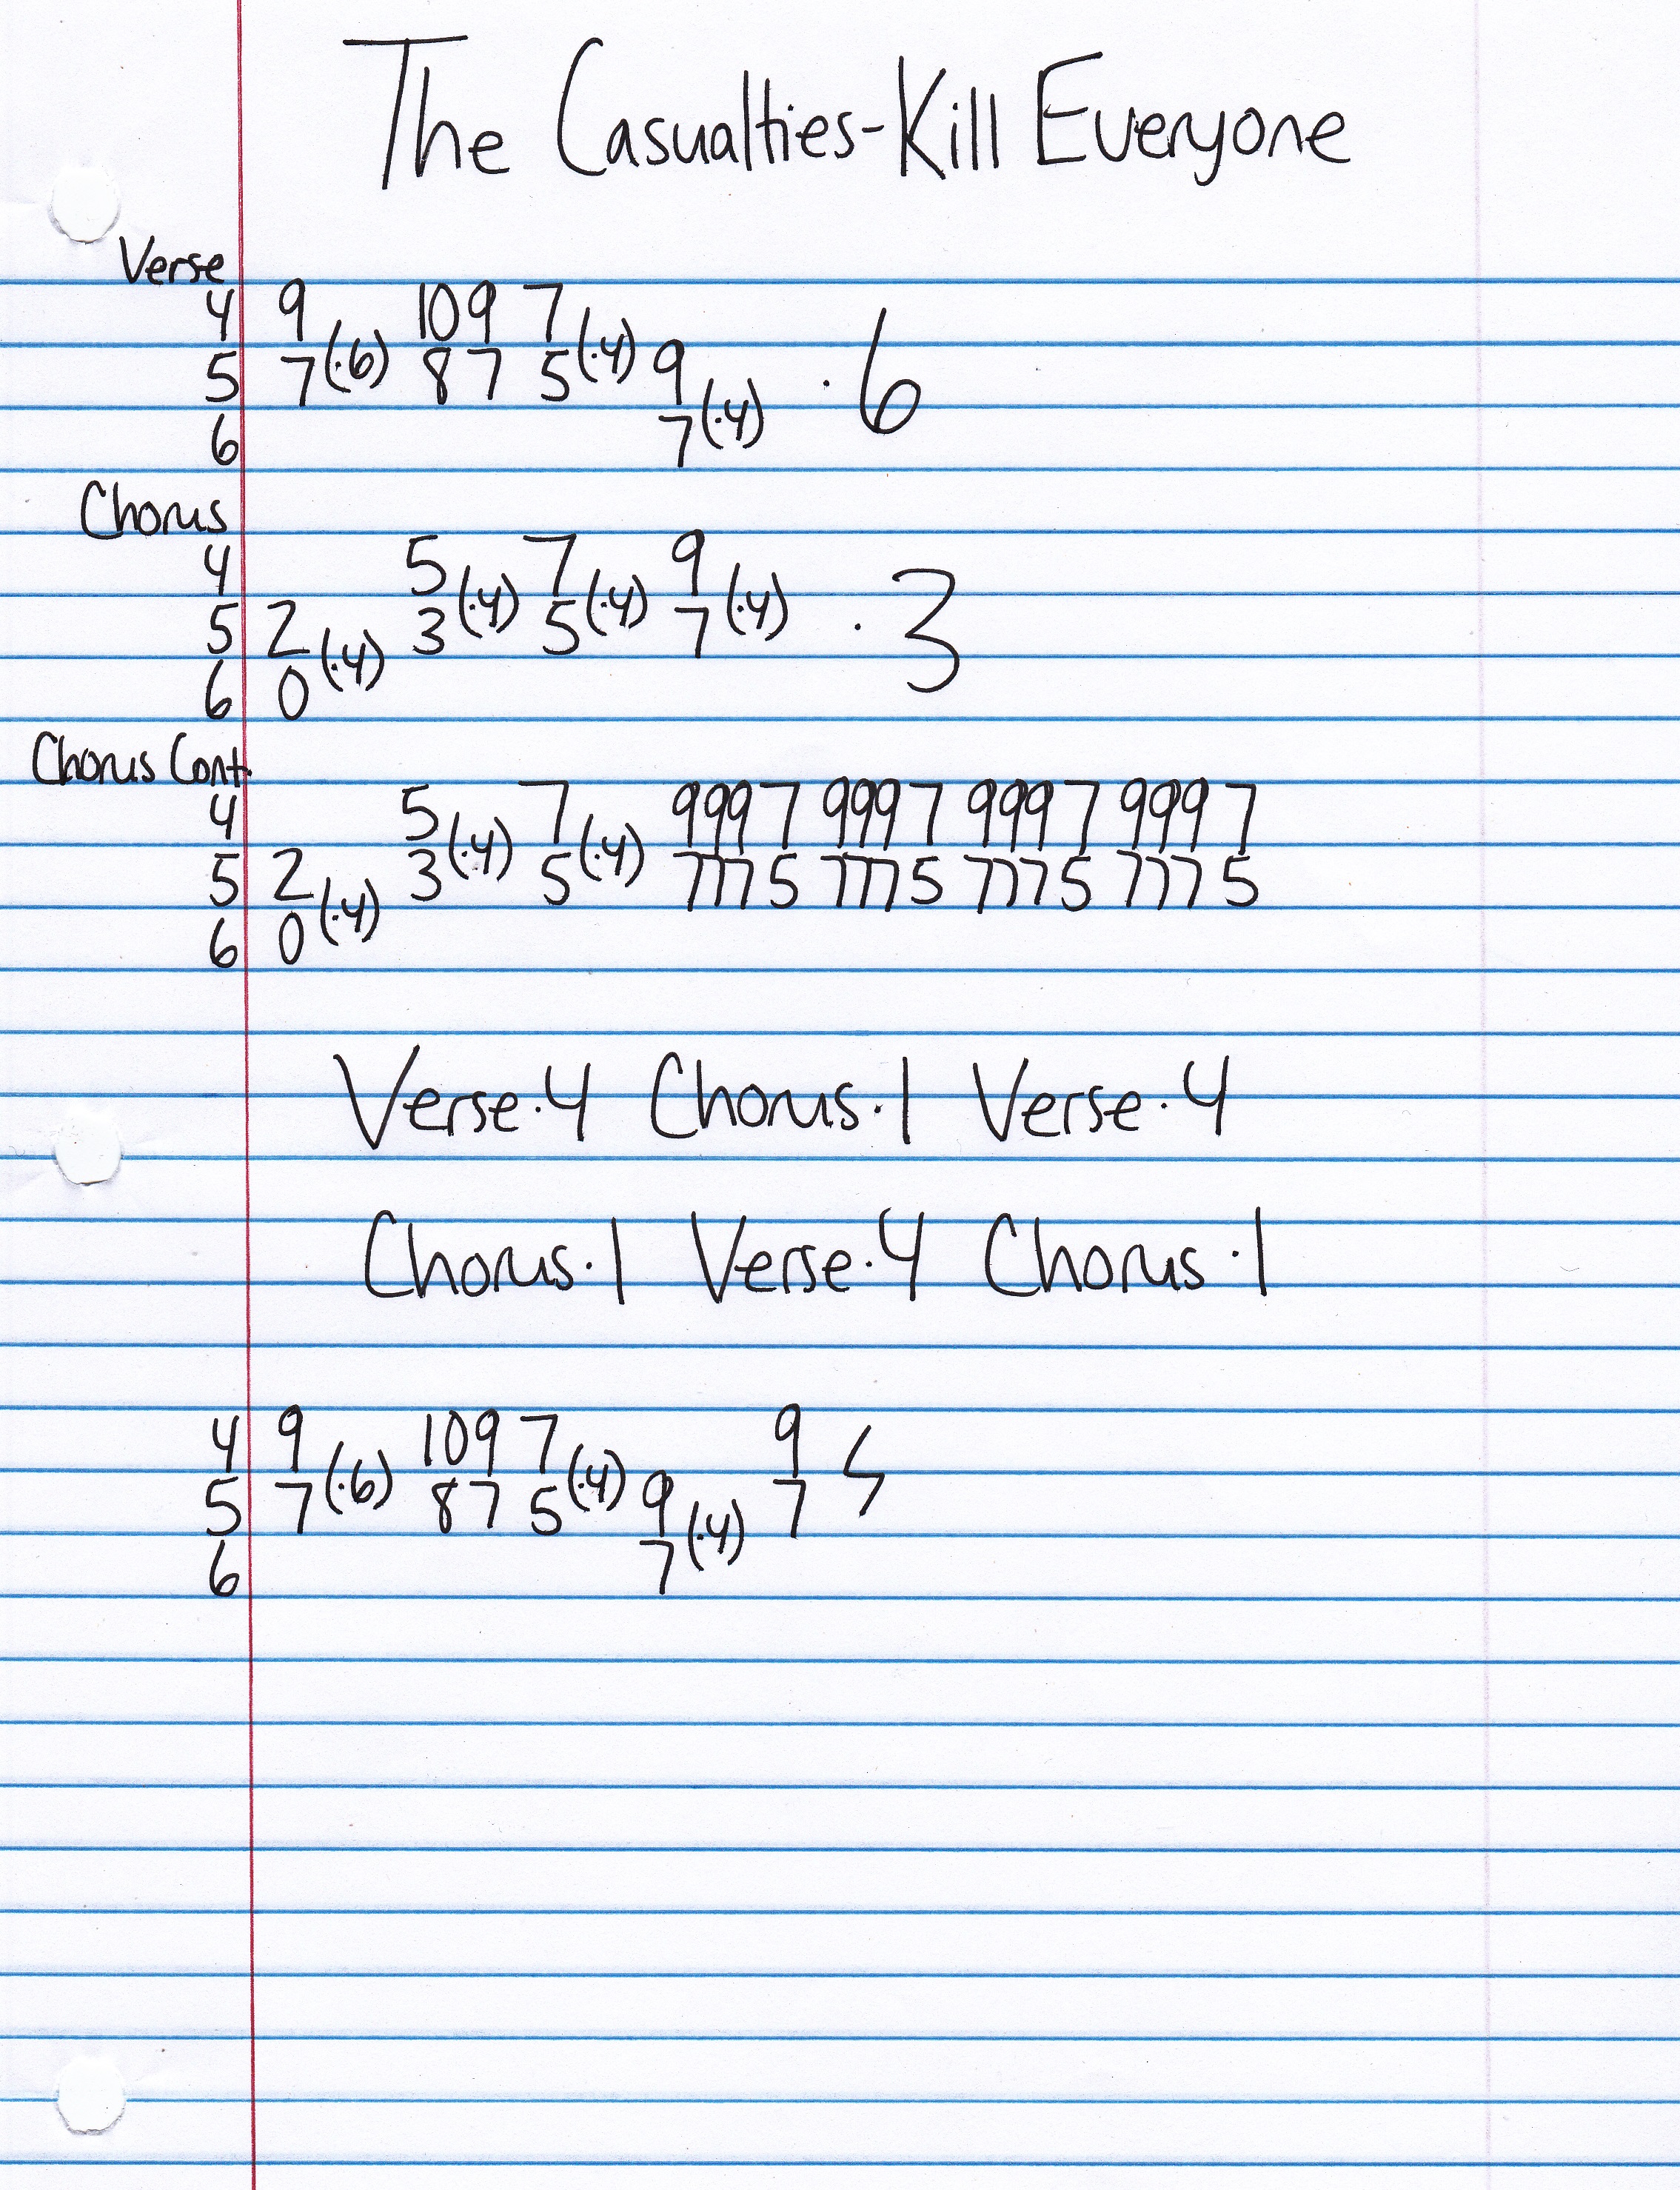 The Casualties-Kill Everyone
Verse
4 9 10 9 7
5 7 (·6) 8 7 5 (·4) 9 · 6
6 7 (·4)
Chorus
4 5 7 9
5 2 3 (·4) 5 (·4) 7 (·4) · 3
6 0 (·4)
Chorus Cont.
4 5 7 999 7 999 7 999 7 999 7
5 2 3 (·4) 5 (·4) 777 5 777 5 777 5 777 5
6 0 (·4)
Verse·4 Chorus·1 Verse·4
Chorus·1 Verse·4 Chorus·1
4 9 10 9 7 9
5 7 (·6) 8 7 5 (·4) 9 7
6 7 (·4)